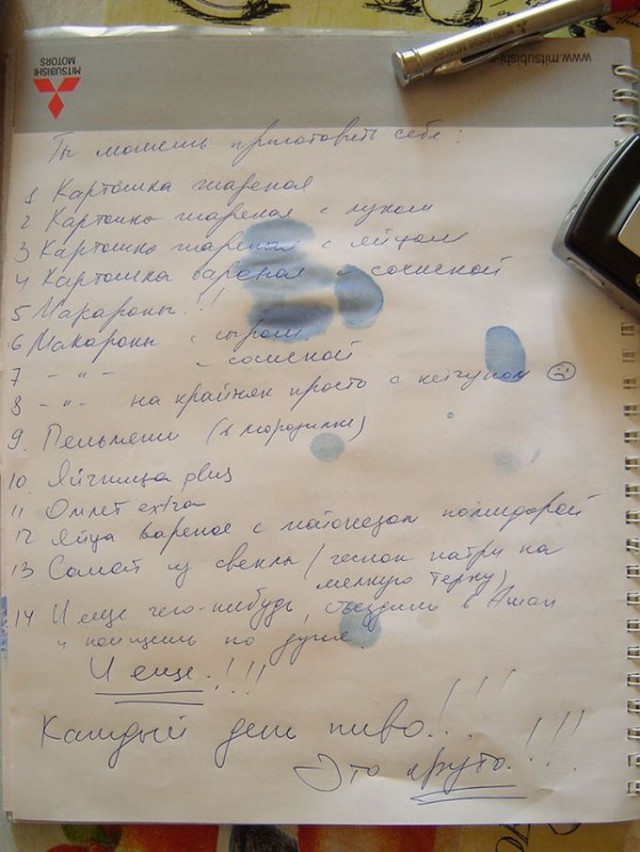 MITSUBISHI
MOTORS
MITSUBISHI MOTORS
www.mitsubishi-
Ты можешь приготовить себе:
1 Картошка жареная
2 Картошка жареная с луком
3 Картошка жареная с яйцом
4 Картошка вареная с сосиской
5 Макароны!!
6 Макароны с сыром
7 - " - - сосиской
8 - " - на крайняк просто с кетчупом ☹
9. Пельмени (в морозилке)
10. Яйчница plus
11 Омлет extra
12 Яйца вареное с майонезом помидорой
13 Салат из свеклы (чеснок натри на
мелкую терку)
14 И еще чего-нибудь, съездишь в Ашан
и поищешь по душе.
И еще!!!
Каждый день пиво!..!!!
Это круто.!!!